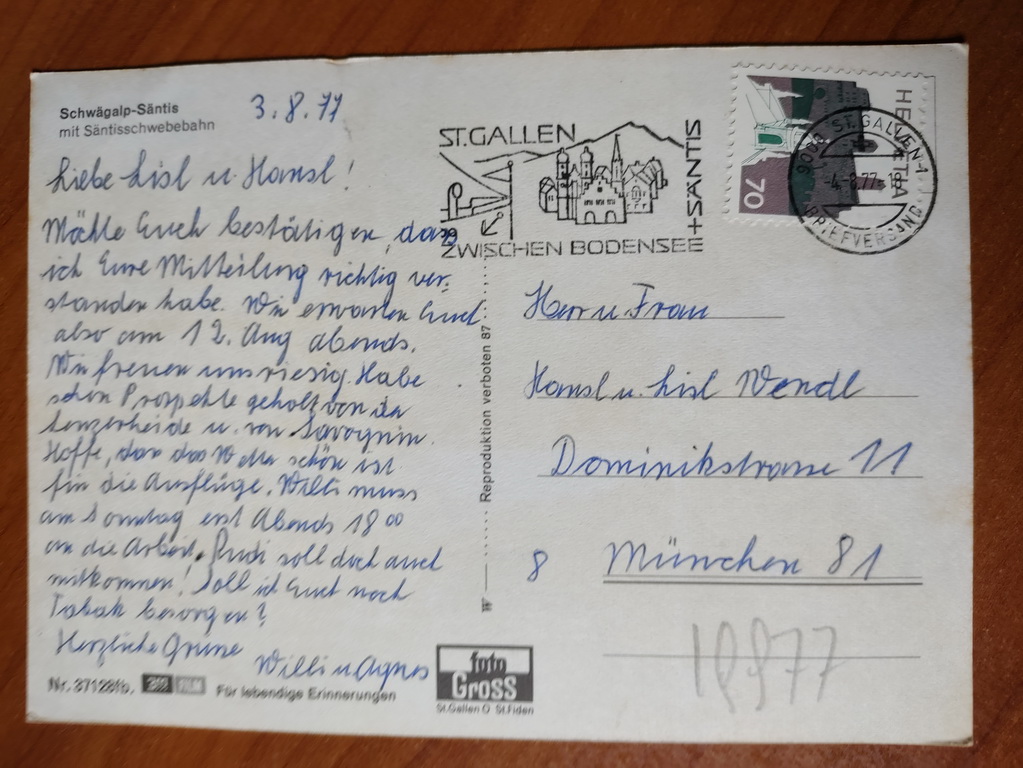 Schwägalp-Säntis
mit Säntisschwebebahn
3.8.77
Liebe Lisl u. Hansl!
Möchte Euch bestätigen, dass
ich Eure Mitteilung richtig ver-
standen habe. Wir erwarten Euch
also am 12. Aug abends.
Wir freuen uns riesig. Habe
schon Prospekte geholt von der
Lenzerheide u. von Savognin.
Hoffe, dass das Wetter schön ist
für die Ausflüge. Willi muss
am Sonntag erst Abends 18 00
an die Arbeit. Rudi soll doch auch
mitkommen! Soll ich Euch noch
Tabak besorgen?
Herzliche Grüsse
Willi u Agnes
Nr. 37128fb,
Für lebendige Erinnerungen
foto
Gross
St.Gallen O St.Fiden
Reproduktion verboten 87
ST.GALLEN
ZWISCHEN BODENSEE
+SÄNTIS
HELVETIA
70
9000 ST.GALLEN 1
-4.-8.77
BRIEFVERSAND
Herr u Frau
Hansl u. Lisl Wendl
Dominikstrasse 11
8 München 81
19977